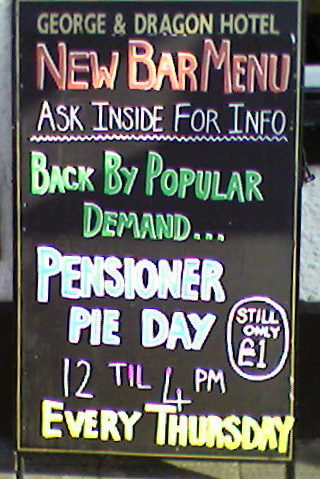 GEORGE & DRAGON HOTEL
NEW BAR MENU
ASK INSIDE FOR INFO
BACK BY POPULAR
DEMAND...
PENSIONER
PIE DAY
STILL
ONLY
£1
12 TIL 4 PM
EVERY THURSDAY